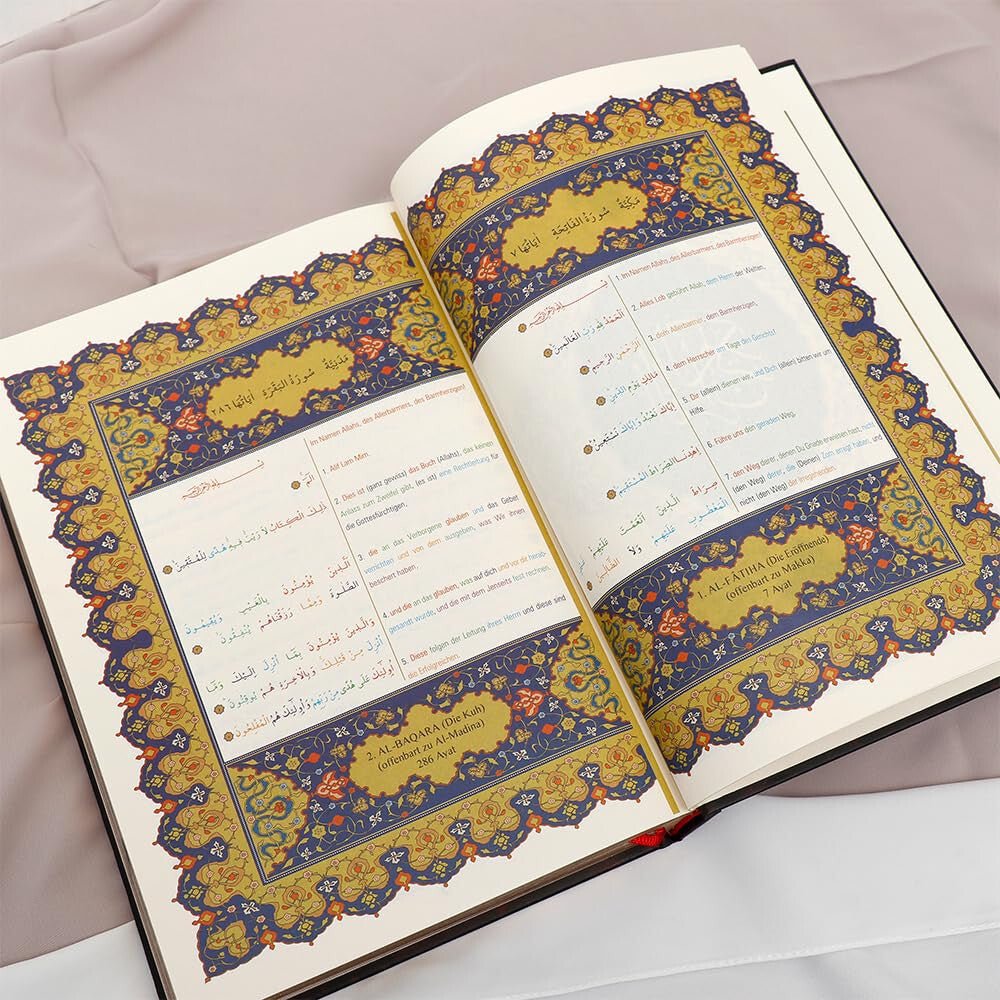 مَكِّيَّةٌ سُورَةُ الْفَاتِحَةِ اٰيَاتُهَا ٧
1. Im Namen Allahs, des Allerbarmers, des Barmherzigen!
2. Alles Lob gebührt Allah, dem Herrn der Welten,
3. dem Allerbarmer, dem Barmherzigen,
4. dem Herrscher am Tage des Gerichts!
5. Dir (allein) dienen wir, und Dich (allein) bitten wir um
Hilfe.
6. Führe uns den geraden Weg,
7. den Weg derer, denen Du Gnade erwiesen hast, nicht
(den Weg) derer, die (Deinen) Zorn erregt haben, und
nicht (den Weg) der Irregehenden.
اَلْحَمْدُ لِلّٰهِ رَبِّ الْعَالَمِينَ
الرَّحْمٰنِ الرَّحِيمِ
مَالِكِ يَوْمِ الدِّينِ
اِيَّاكَ نَعْبُدُ وَاِيَّاكَ نَسْتَعِينُ
اِهْدِنَا الصِّرَاطَ الْمُسْتَقِيمَ
صِرَاطَ الَّذِينَ اَنْعَمْتَ عَلَيْهِمْ
الْمَغْضُوبِ عَلَيْهِمْ وَلَا الضَّالِّينَ
1. AL-FÂTIHA (Die Eröffnende)
(offenbart zu Makka)
7 Ayat
مَدَنِيَّةٌ سُورَةُ الْبَقَرَةِ اٰيَاتُهَا ٢٨٦
Im Namen Allahs, des Allerbarmers, des Barmherzigen!
1. Alif Lam Mim.
2. Dies ist (ganz gewiss) das Buch (Allahs), das keinen
Anlass zum Zweifel gibt, (es ist) eine Rechtleitung für
die Gottesfürchtigen,
3. die an das Verborgene glauben und das Gebet
verrichten und von dem ausgeben, was Wir ihnen
beschert haben,
4. und die an das glauben, was auf dich und vor dir herab-
gesandt wurde, und die mit dem Jenseits fest rechnen.
5. Diese folgen der Leitung ihres Herrn und diese sind
die Erfolgreichen.
الٓمٓ
ذٰلِكَ الْكِتَابُ لَا رَيْبَ فِيهِ هُدًى لِلْمُتَّقِينَ
اَلَّذِينَ يُؤْمِنُونَ بِالْغَيْبِ وَيُقِيمُونَ
الصَّلٰوةَ وَمِمَّا رَزَقْنَاهُمْ يُنْفِقُونَ
وَالَّذِينَ يُؤْمِنُونَ بِمَا اُنْزِلَ اِلَيْكَ وَمَا
اُنْزِلَ مِنْ قَبْلِكَ وَبِالْاٰخِرَةِ هُمْ يُوقِنُونَ
اُولٰئِكَ عَلٰى هُدًى مِنْ رَبِّهِمْ وَاُولٰئِكَ هُمُ الْمُفْلِحُونَ
2. AL-BAQARA (Die Kuh)
(offenbart zu Al-Madina)
286 Ayat